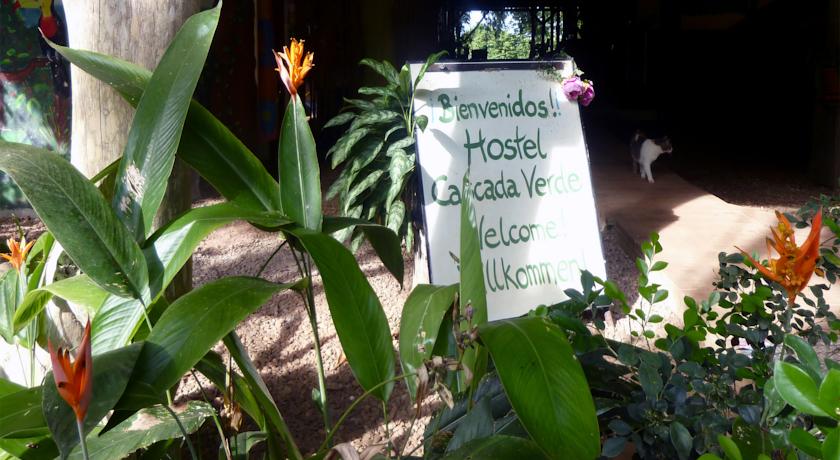 Bienvenidos!!
Hostel
Cascada Verde
Welcome!
Willkommen!